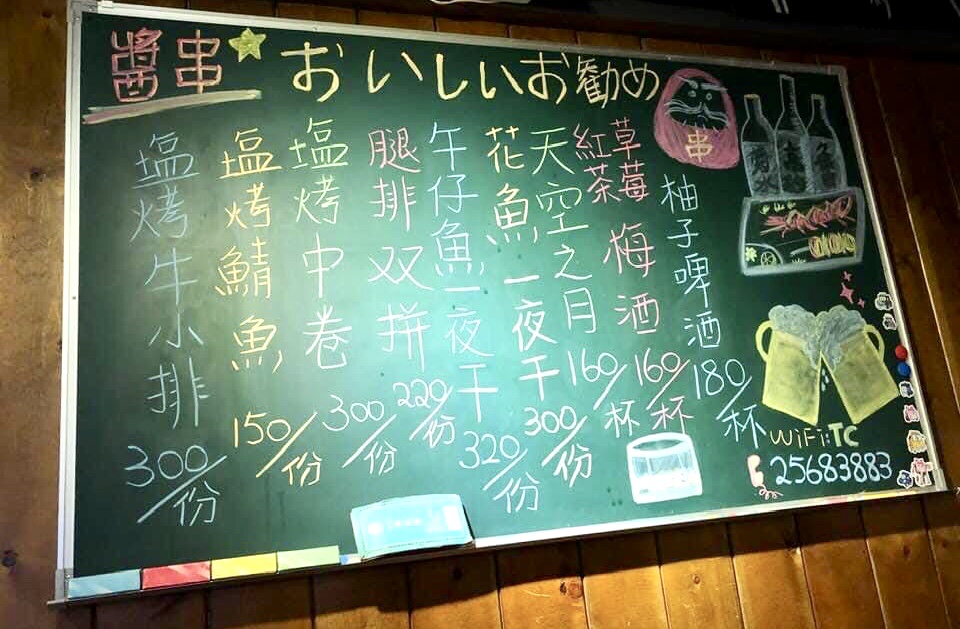 醬串 おいしいお勧め
串
柚子啤酒
180/杯
草莓 紅茶 梅酒
160/杯
天空之月
160/杯
花魚一夜干
300/份
午仔魚一夜干
320/份
腿排双拼
220/份
塩烤中卷
300/份
塩烤鯖魚
150/份
塩烤牛小排
300/份
WiFi:TC
25683883